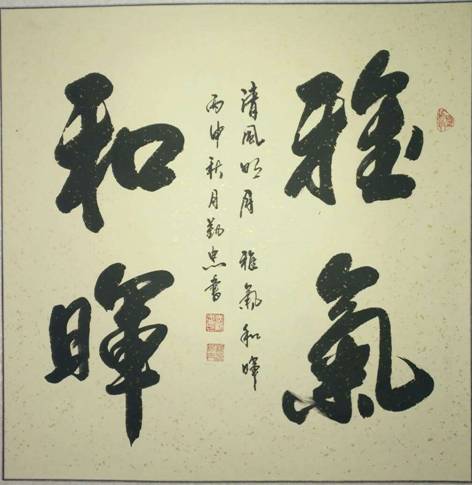 雅氣
和暉
清風明月 雅氣和暉
丙申秋月勤忠書